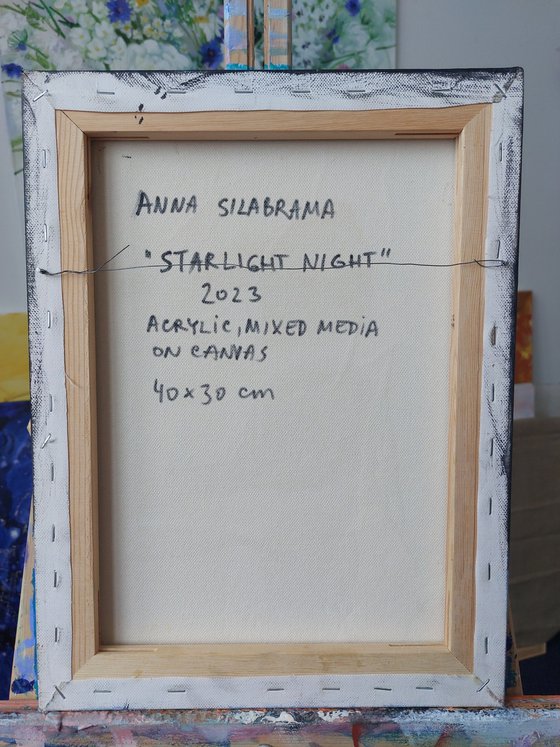 ANNA SILABRAMA
"STARLIGHT NIGHT"
2023
ACRYLIC, MIXED MEDIA
ON CANVAS
40x30 cm